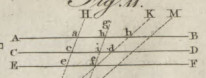 Fig. 11.
H K M
g
A a h b B
C c i d D
E e f F